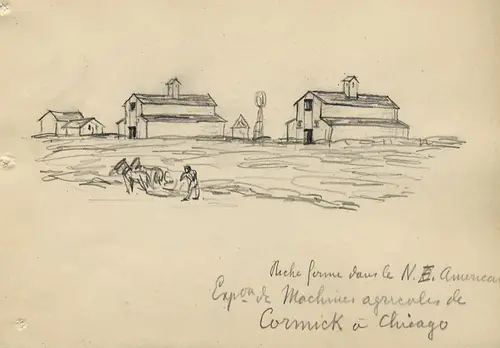 Riche ferme dans le N. E. American
Expon de Machines agricoles de
Cormick à Chicago